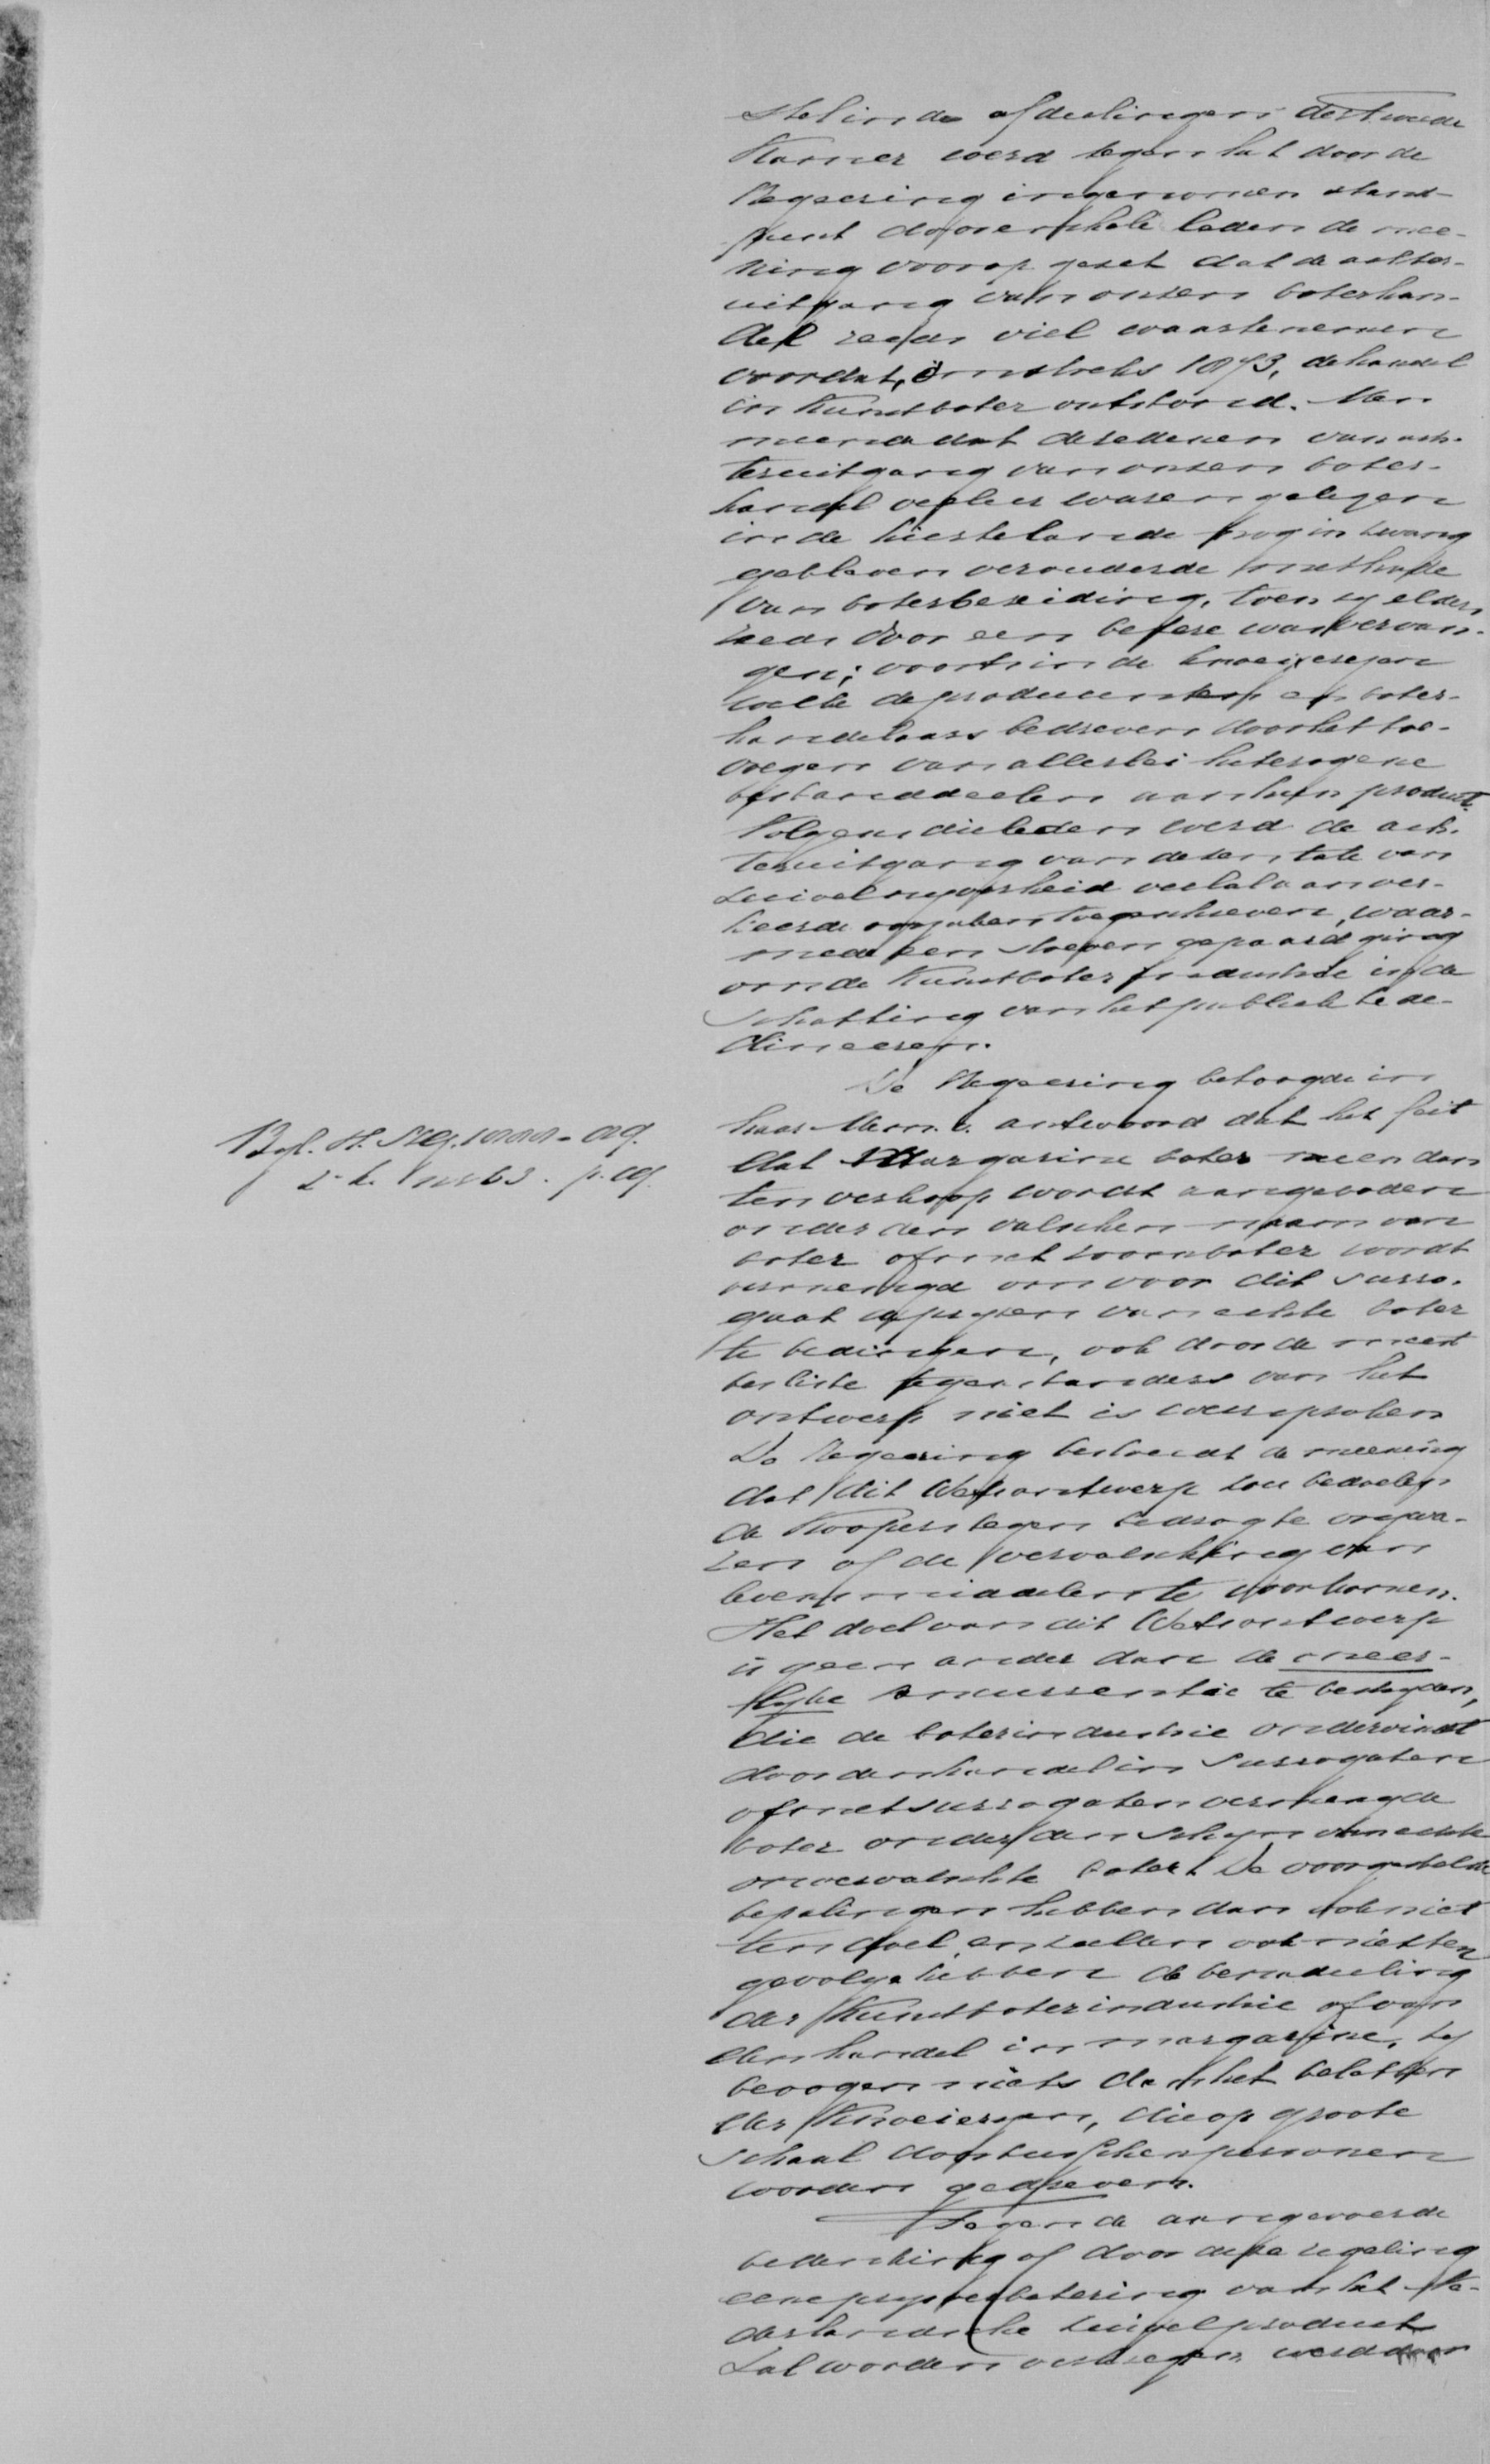 stel in de afdeelingen der Tweede
Kamer werd tegen het door de
Regeering ingenomen stand-
punt door enkele leden de mee-
ning voorop gezet dat de achter-
uitgang van onzen boterhan-
del reeds viel waartenemen
voordat, omstreeks 1873, de handel
in Kunstboter ontstond. Men
meende dat de redenen van ach-
teruitgang van onzen boter-
handel veeleer waren gelegen
in de hier te lande nog in zwang
gebleven verouderde methode
van boterbereiding, toen zy elders
reeds door een betere was vervan-
gen; voorts in de knoeieryen
welke de producenten en boter-
handelaars bedreven door het toe-
voegen van allerlei heterogene
bestanddeelen aan hun product.
Volgens die leden werd de ach-
teruitgang van dezen tak van
zuivelnyverheid veelal aan ver-
keerde oorzaken toegeschreven, waar-
mede een streven gepaard ging
om de Kunstboter industrie in de
schatting van het publiek te de-
clineeren.
De Regeering betoogde in
haar Mem. v. antwoord dat het feit
dat Margarine boter meendan
ten verkoop wordt aangeboden
onder den valschen naam van
boter of met roomboter wordt
vermengd om voor dit surro-
gaat de pryzen van echte boter
te bedingen, ook door de meest
besliste tegenstanders van het
ontwerp niet is weersproken
De Regeering bestreedt de meening
dat dit Wetsontwerp zou bedoelen
de Koopers tegen bedrog te vrywa-
ren of de vervalsching van
levensmiddelen te voorkomen.
Het doel van dit Wetsontwerp
is geen ander dan de oneer-
lyke concurrentie te bestryden,
die de boterindustrie ondervindt
door den handel in surrogaten
of met surrogaten vermengde
boter onder den schyn van echte
onvervalschte boter. De voorgestelde
bepalingen hebben dan ook niet
ten doel en zullen ook niet ten
gevolge hebben de bemoeieling
der Kunstboterindustrie of van
den handel in margarine, zy
beoogen niets dan het beletten
der Knoeieryen, die op groote
schaal door tusschenpersonen
worden gedreven.
Tegen de aangevoerde
bedenking of door deze regeling
eene prysverbetering van het Ne-
derlandsche zuivelproduct
zal worden verkregen werd door
Byl. H.
p.